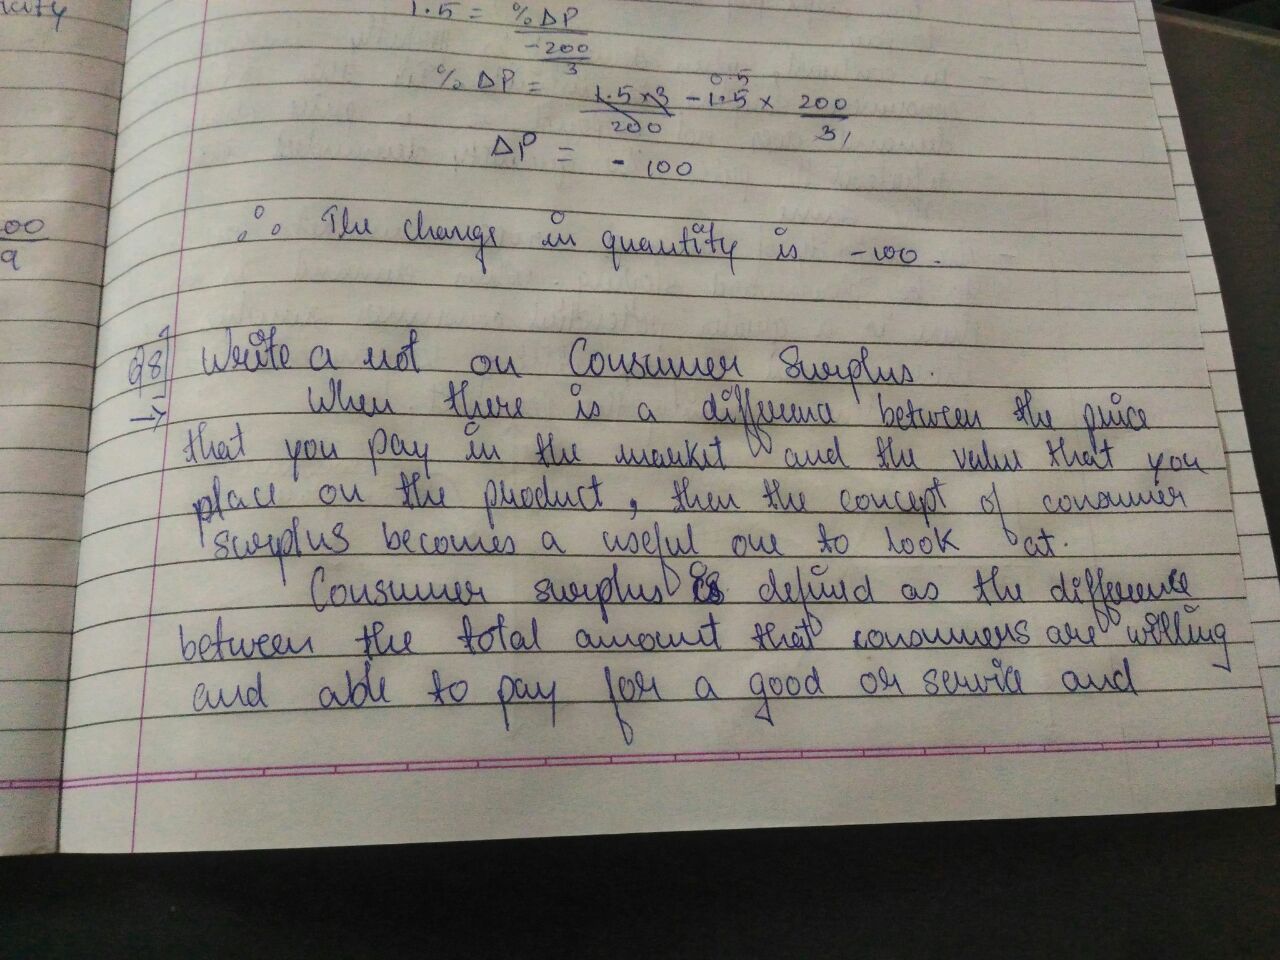 icity
1.5 = %ΔP
-200
3
%ΔP = 1.5×3 -1.5 × 200
0.5
200 3
ΔP = -100
∴ The change in quantity is -100.
00
9
Q8] Write a not on Consumer Surplus.
→ When there is a difference between the price
that you pay in the market and the value that you
place on the product, then the concept of consumer
surplus becomes a useful one to look at.
Consumer surplus is defined as the difference
between the total amount that consumers are willing
and able to pay for a good or service and